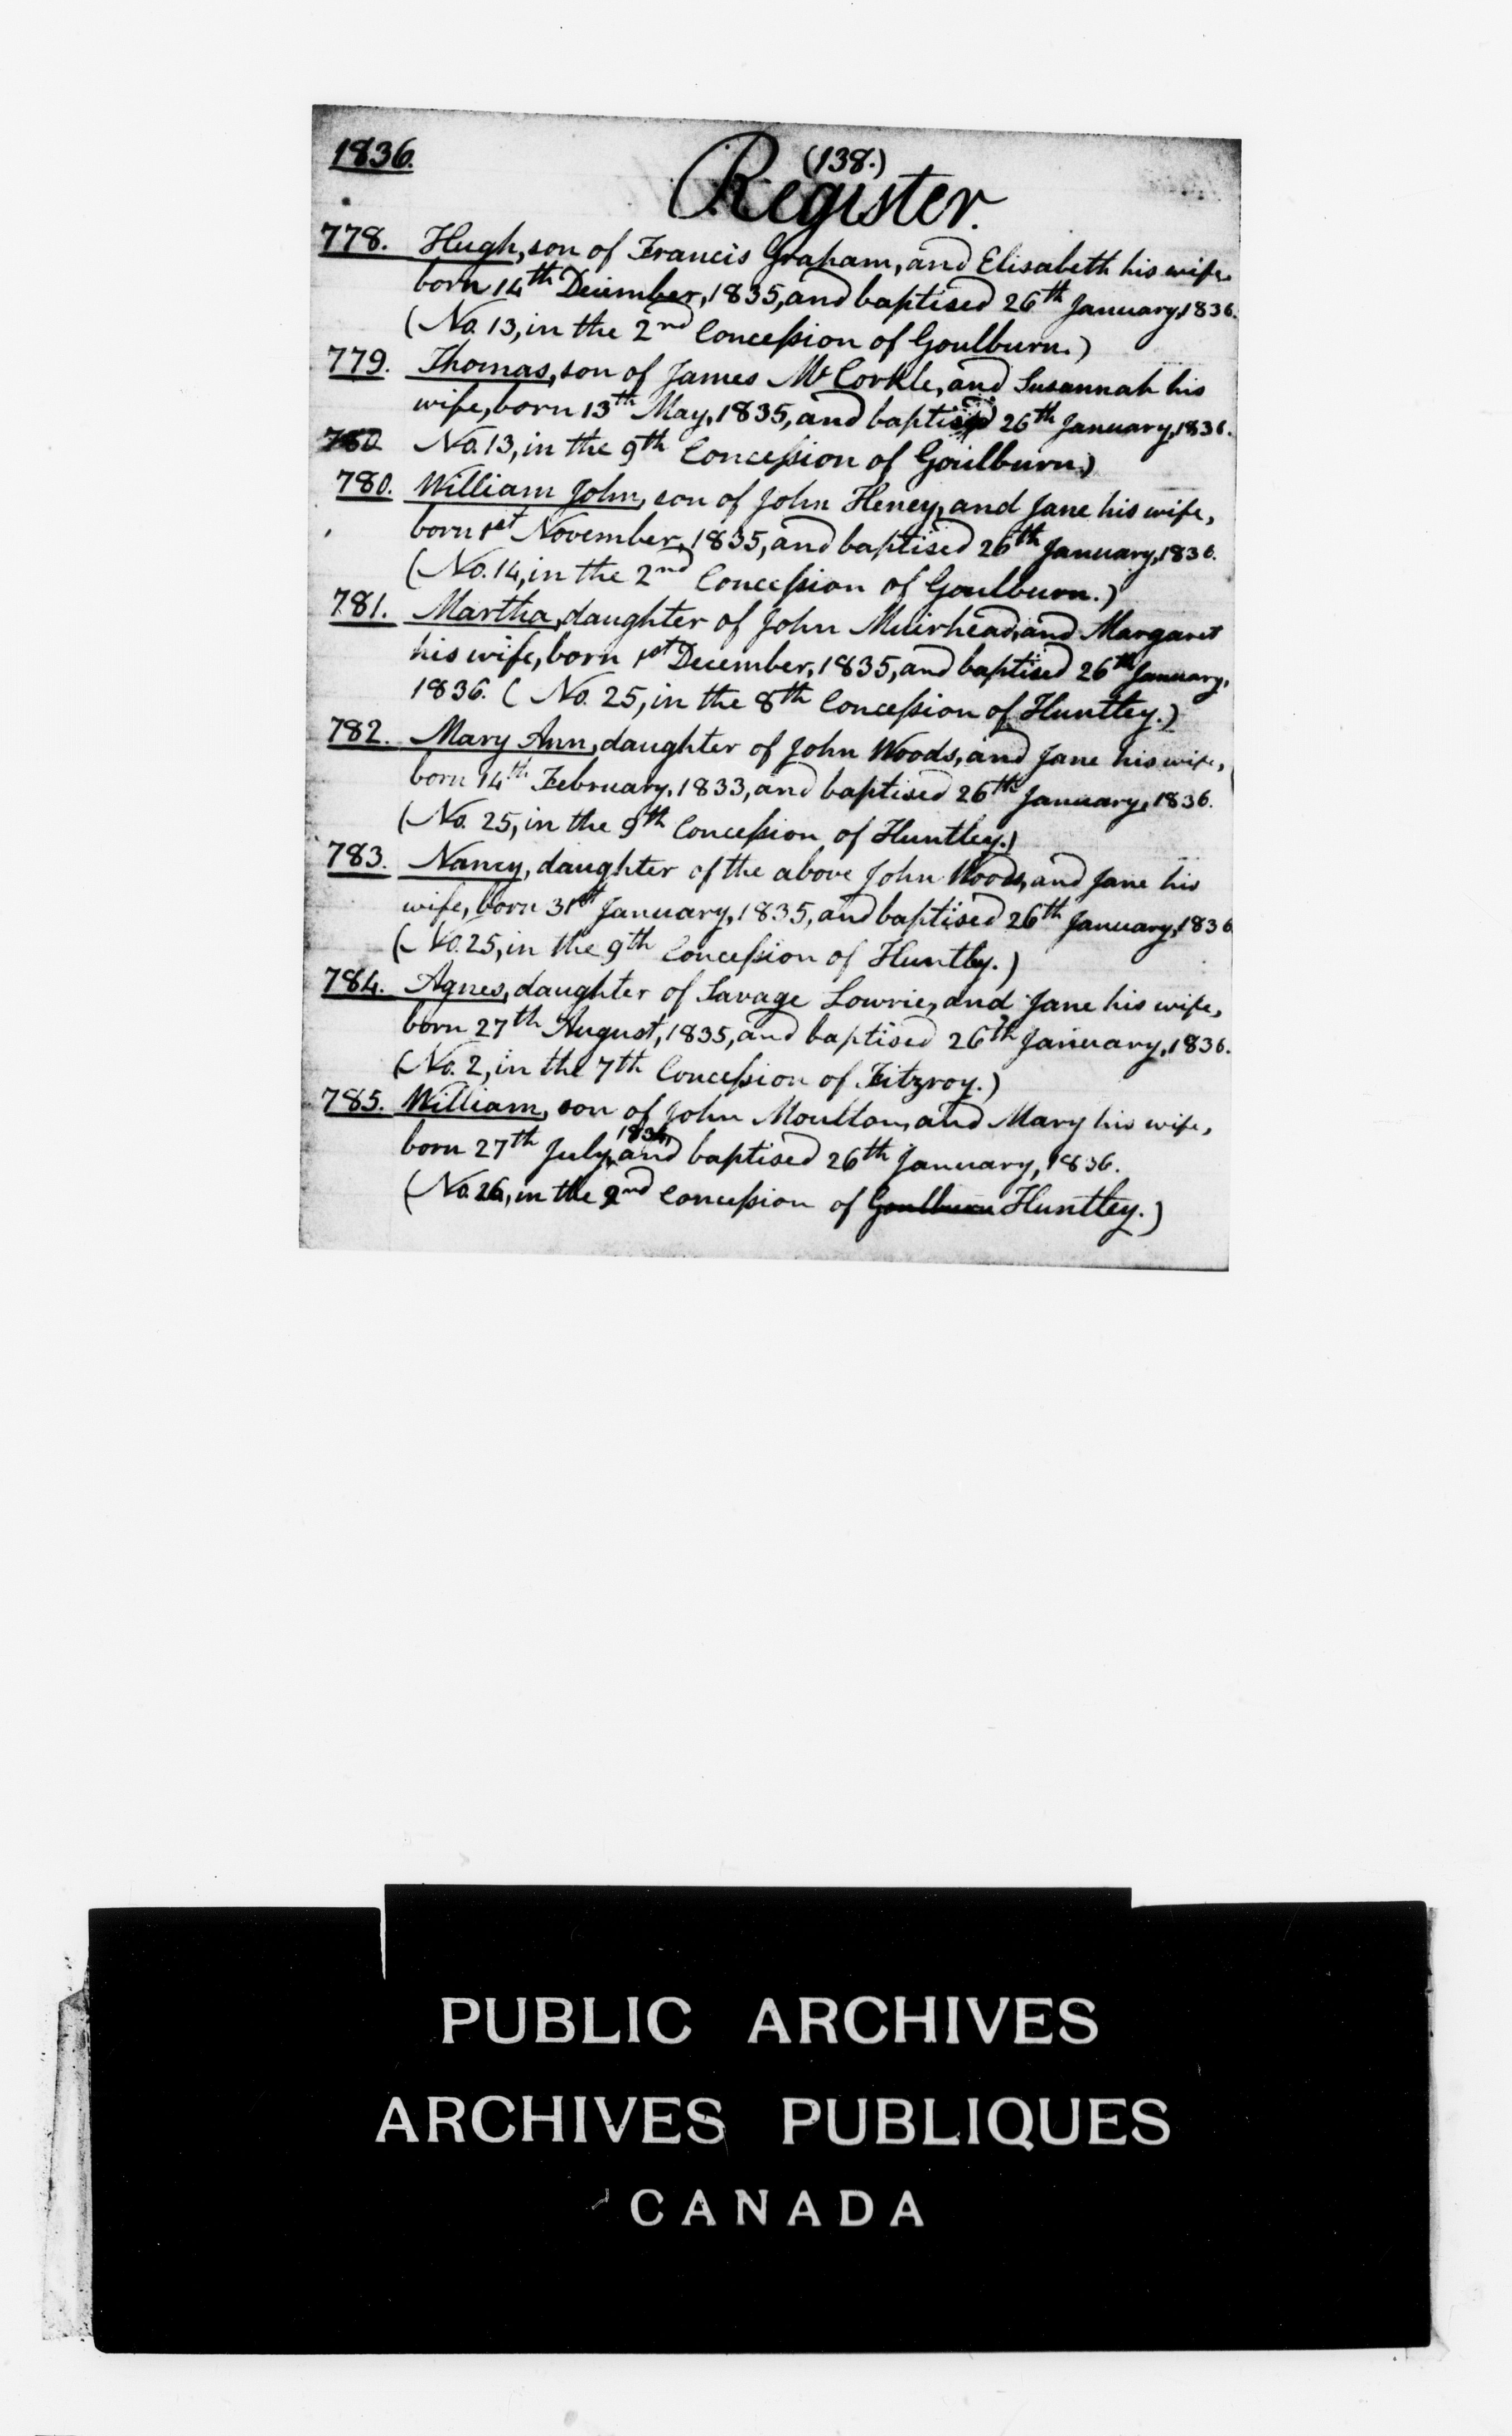 1836.
(138.)
Register.
778. Hugh, son of Francis Graham, and Elisabeth his wife,
born 14th December, 1835, and baptised 26th January, 1836.
(No. 13, in the 2nd Concession of Goulburn.)
779. Thomas, son of James McCorkle, and Susannah his
wife, born 13th May, 1835, and baptised 26th January, 1836.
780 No. 13, in the 9th Concession of Goulburn.)
780. William John, son of John Heney, and Jane his wife,
born 1st November, 1835, and baptised 26th January, 1836.
(No. 14, in the 2nd Concession of Goulburn.)
781. Martha, daughter of John Muirhead, and Margaret
his wife, born 1st December, 1835, and baptised 26th January,
1836. (No. 25, in the 8th Concession of Huntley.)
782. Mary Ann, daughter of John Woods, and Jane his wife,
born 14th February, 1833, and baptised 26th January, 1836.
(No. 25, in the 9th Concession of Huntley.)
783. Nancy, daughter of the above John Woods, and Jane his
wife, born 31st January, 1835, and baptised 26th January, 1836
(No. 25, in the 9th Concession of Huntley.)
784. Agnes, daughter of Savage Lowrie, and Jane his wife,
born 27th August, 1835, and baptised 26th January, 1836.
(No. 2, in the 7th Concession of Fitzroy.)
785. William, son of John Moulton, and Mary his wife,
born 27th July, and baptised 26th January, 1836.
(No. 26, in the 2nd Concession of Goulburn Huntley.)
PUBLIC ARCHIVES
ARCHIVES PUBLIQUES
CANADA